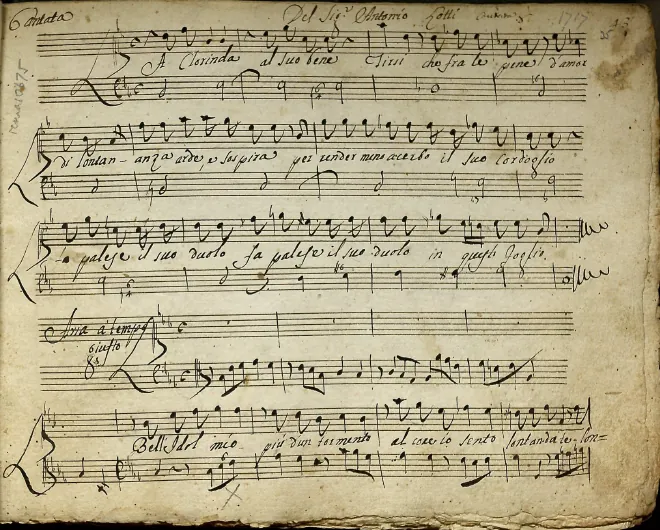 Cantata Del Sig.r Antonio Lotti 1717
A Clorinda al suo bene Tirsi che fra le pene d'amor
di lontan - anza arde, e sospira per render meno acerbo il suo Cordoglio
fa palese il suo duolo fa palese il suo duolo in questi foglio.
Aria à tempo
giusto
Bell'Idol mio più d'un tormento al core io sento lontan da te lon=